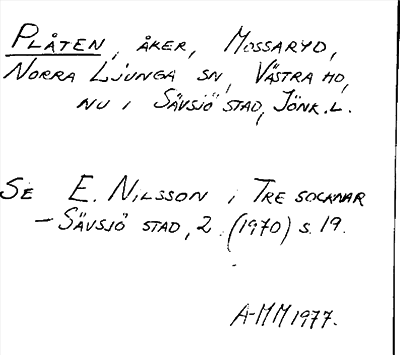 PLÅTEN, ÅKER, MOSSARYD,
NORRA LJUNGA SN, VÄSTRA HD,
NU I SÄVSJÖ STAD, JÖNK.L.
SE E. NILSSON I TRE SOCKNAR
- SÄVSJÖ STAD, 2. (1970) S. 19.
A-MM 1977.